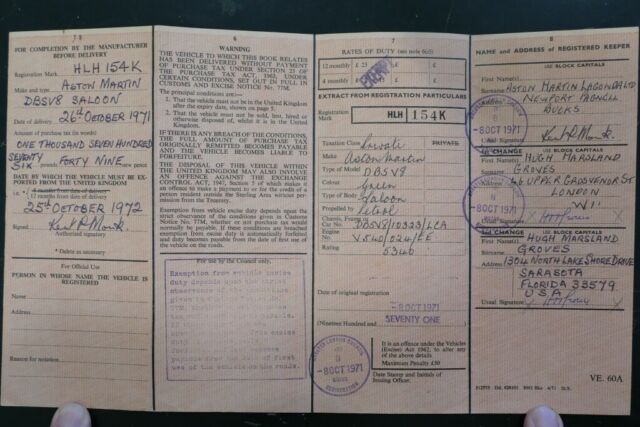 7 8
FOR COMPLETION BY THE MANUFACTURER
BEFORE DELIVERY
Registration Mark HLH 154K
Make and type ASTON MARTIN
DBSV8 SALOON
Date of delivery 26th OCTOBER 1971
Amount of purchase tax (in words)
ONE THOUSAND SEVEN HUNDRED
SEVENTY SIX pounds FORTY NINE new pence
DATE BY WHICH THE VEHICLE MUST BE EX-
PORTED FROM THE UNITED KINGDOM
6 months from date of delivery
12 months from date of delivery
25th OCTOBER 1972
Signed
Authorised signatory
* Delete as necessary
For Official Use
PERSON IN WHOSE NAME THE VEHICLE IS
REGISTERED
Name
Address
Reason for notation
6
WARNING
THE VEHICLE TO WHICH THIS BOOK RELATES
HAS BEEN DELIVERED WITHOUT PAYMENT
OF PURCHASE TAX UNDER SECTION 23 OF
THE PURCHASE TAX ACT, 1963, UNDER
CERTAIN CONDITIONS, SET OUT IN FULL IN
CUSTOMS AND EXCISE NOTICE No. 77M.
The principal conditions are:
1. That the vehicle must not be in the United Kingdom
after the expiry date, shown on page 5.
2. That the vehicle must not be sold, lent, hired or
otherwise disposed of, whilst it is in the United
Kingdom.
IF THERE IS ANY BREACH OF THE CONDITIONS,
THE FULL AMOUNT OF PURCHASE TAX
ORIGINALLY REMITTED BECOMES PAYABLE
AND THE VEHICLE BECOMES LIABLE TO
FORFEITURE.
THE DISPOSAL OF THIS VEHICLE WITHIN
THE UNITED KINGDOM MAY ALSO INVOLVE
AN OFFENCE AGAINST THE EXCHANGE
CONTROL ACT, 1947, Section 5 of which makes it
an offence to make a payment to or for the credit of a
person resident outside the Sterling Area without
permission of the Treasury.
Exemption from vehicle excise duty depends upon the
strict observance of the conditions given in Customs
Notice No. 77M, whether or not purchase tax would
normally be payable. If these conditions are broken
exemption from excise duty is automatically forfeited
and duty becomes payable from the date of first use of
the vehicle on the roads.
For use by the Council only.
Exemption from vehicle excise
duty depends upon the strict
observance of the conditions
given in
use of the vehicle on the roads.
7
RATES OF DUTY (see note 6(d))
12 monthly £ 25 £ £
4 monthly £ £ £
EXTRACT FROM REGISTRATION PARTICULARS
Registration
MARK HLH 154K
Taxation Class Private PRIVATE
Make Aston Martin
Type of Model DBSV8
Colour Green
Type of Body Saloon
Propelled by Petrol
Car No DBSV8/10323/LCA
Engine No V540/024/EE
Rating 5340
Date of original registration
-8 OCT 1971
(Nineteen Hundred and SEVENTY ONE
GREATER LONDON COUNCIL
8
-8 OCT 1971
REGISTRATION
It is an offence under the Vehicles
(Excise) Act 1962, to alter any
of the above details
Maximum Penalty £50
Date Stamp and Initials of
Issuing Officer.
8
NAME and ADDRESS of REGISTERED KEEPER
USE BLOCK CAPITALS
First Name(s)
Surname ASTON MARTIN LAGONDA LTD
Address NEWPORT PAGNELL
BUCKS
-8 OCT 1971
Usual Signature
1st CHANGE USE BLOCK CAPITALS
First Name(s) HUGH MARSLAND
Surname GROVES
UPPER GROSVENOR ST
LONDON
W1
-8 OCT 1971
Usual Signature
2nd CHANGE USE BLOCK CAPITALS
First Name(s) HUGH MARSLAND
Surname GROVES
Address 1304 NORTH LAKE SHORE DRIVE
SARASOTA
FLORIDA 33579
U.S.A
Usual Signature
VE. 60A